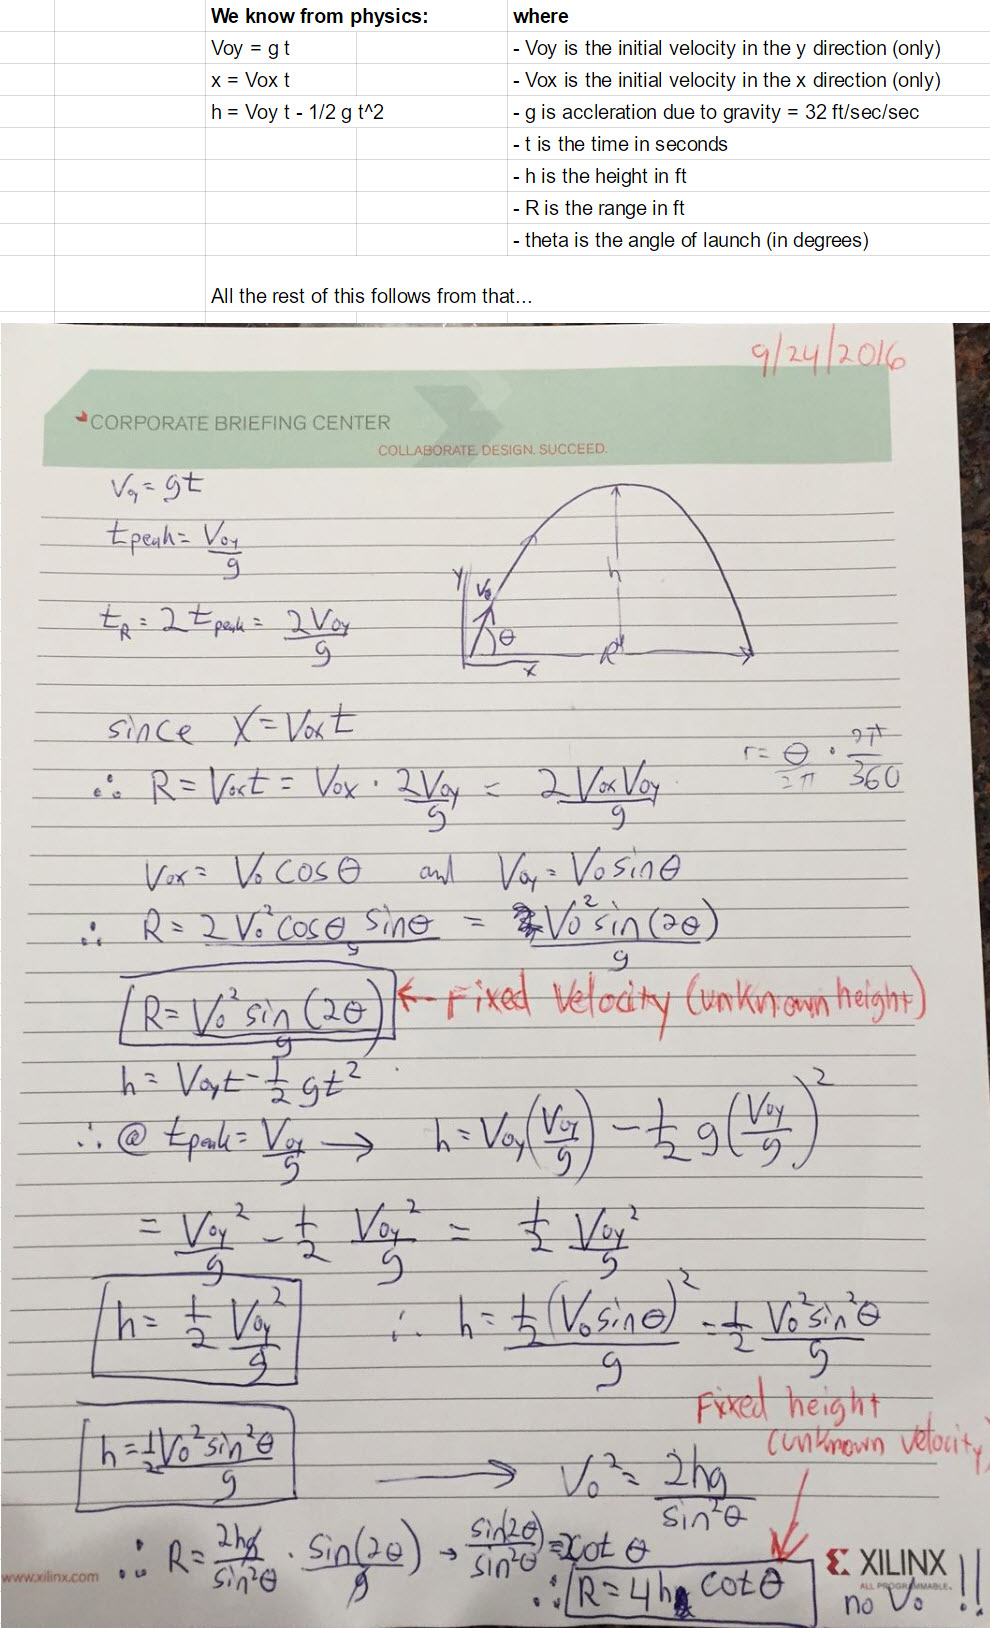 We know from physics: where
Voy = g t - Voy is the initial velocity in the y direction (only)
x = Vox t - Vox is the initial velocity in the x direction (only)
h = Voy t - 1/2 g t^2 - g is accleration due to gravity = 32 ft/sec/sec
- t is the time in seconds
- h is the height in ft
- R is the range in ft
- theta is the angle of launch (in degrees)
All the rest of this follows from that...
9/24/2016
CORPORATE BRIEFING CENTER
COLLABORATE. DESIGN. SUCCEED.
Vy = gt
tpeak = Voy/g
y V0 θ h R x
tR = 2 tpeak = 2Voy/g
since X = Vox t
r = θ/2π · 2π/360
∴ R = Vox t = Vox · 2Voy/g = 2 Vox Voy/g
Vox = V0 cos θ and Voy = V0 sin θ
∴ R = 2 V0² cos θ sin θ/g = V0² sin(2θ)/g
R = V0² sin(2θ)/g ← Fixed Velocity (unknown height)
h = Voy t - 1/2 gt²
∴ @ tpeak = Voy/g → h = Voy(Voy/g) - 1/2 g(Voy/g)²
= Voy²/g - 1/2 Voy²/g = 1/2 Voy²/g
h = 1/2 Voy²/g ∴ h = 1/2 (V0 sin θ)²/g = 1/2 V0² sin² θ/g
Fixed height
(unknown velocity)
h = 1/2 V0² sin² θ/g → V0² = 2hg/sin² θ
∴ R = 2hg/sin² θ · sin(2θ)/g → sin(2θ)/sin² θ = 2cot θ
∴ R = 4h cot θ
www.xilinx.com
XILINX
ALL PROGRAMMABLE.
no V0 !!